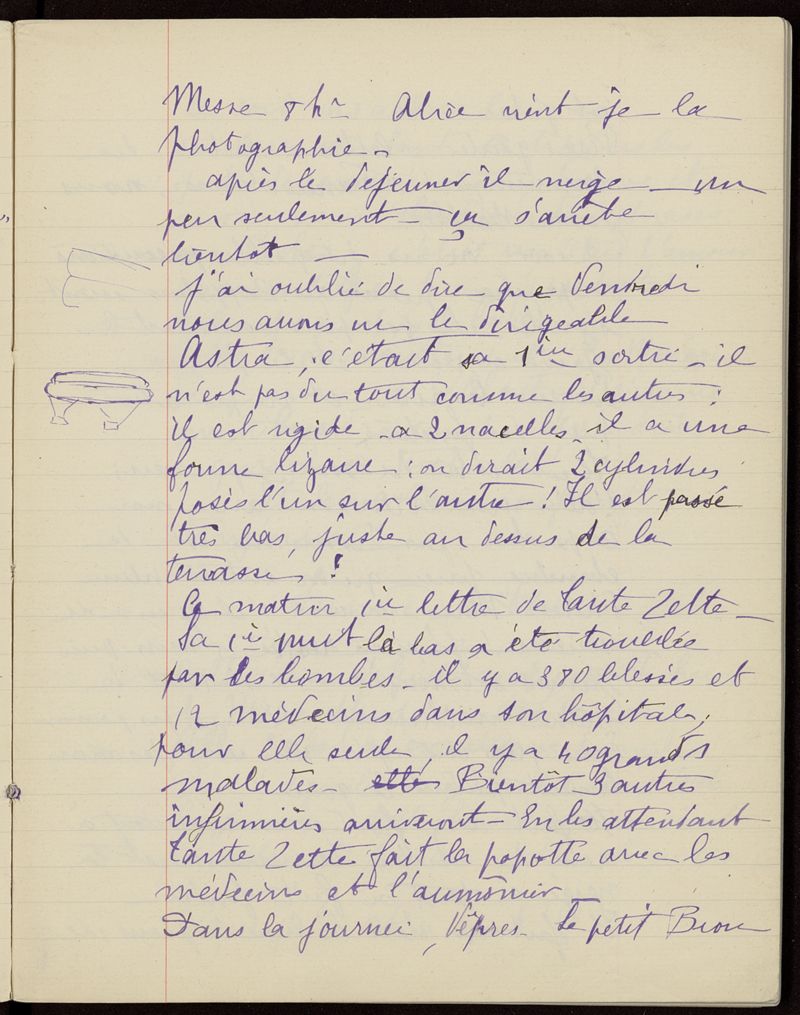 Messe 8 hres Alice vient je la
photographie -
après le dejeuner il neige - un
peu seulement - ça s'arrête
bientot -
J'ai oublié de dire que Vendredi
nous avons vu le dirigeable
Astra, c'était sa 1ière sortie - il
n'est pas du tout comme les autres :
il est rigide - a 2 nacelles - il a une
forme bizarre : on dirait 2 cylindres
posés l'un sur l'autre ! Il est passé
très bas, juste au dessus de la
terrasse !
Ce matin 1ière lettre de tante Zette -
Sa 1ière nuit là bas a été troublée
par les bombes - il y a 380 blessés et
12 médecins dans son hôpital ;
pour elle seule, il y a 40 grands
malades - elle Bientôt 3 autres
infirmières arriveront - En les attendant
tante Zette fait la popotte avec les
médecins et l'aumônier -
Dans la journée, Vêpres - Le petit